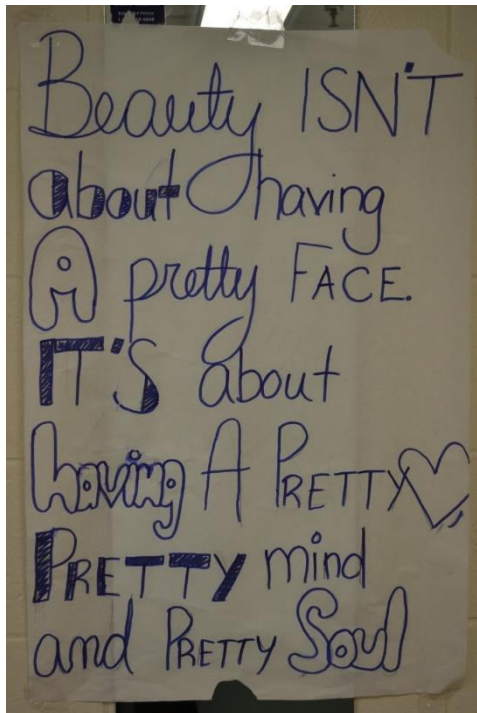 Beauty ISN'T
about having
A pretty FACE.
IT'S about
having A PRETTY♡,
PRETTY mind
and PRETTY Soul